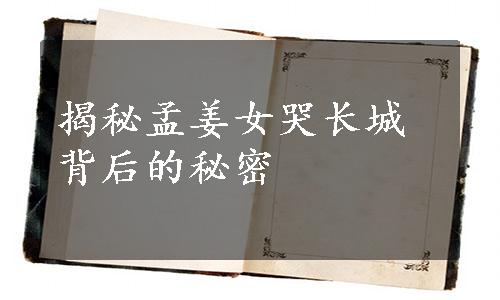 揭秘孟姜女哭长城
背后的秘密